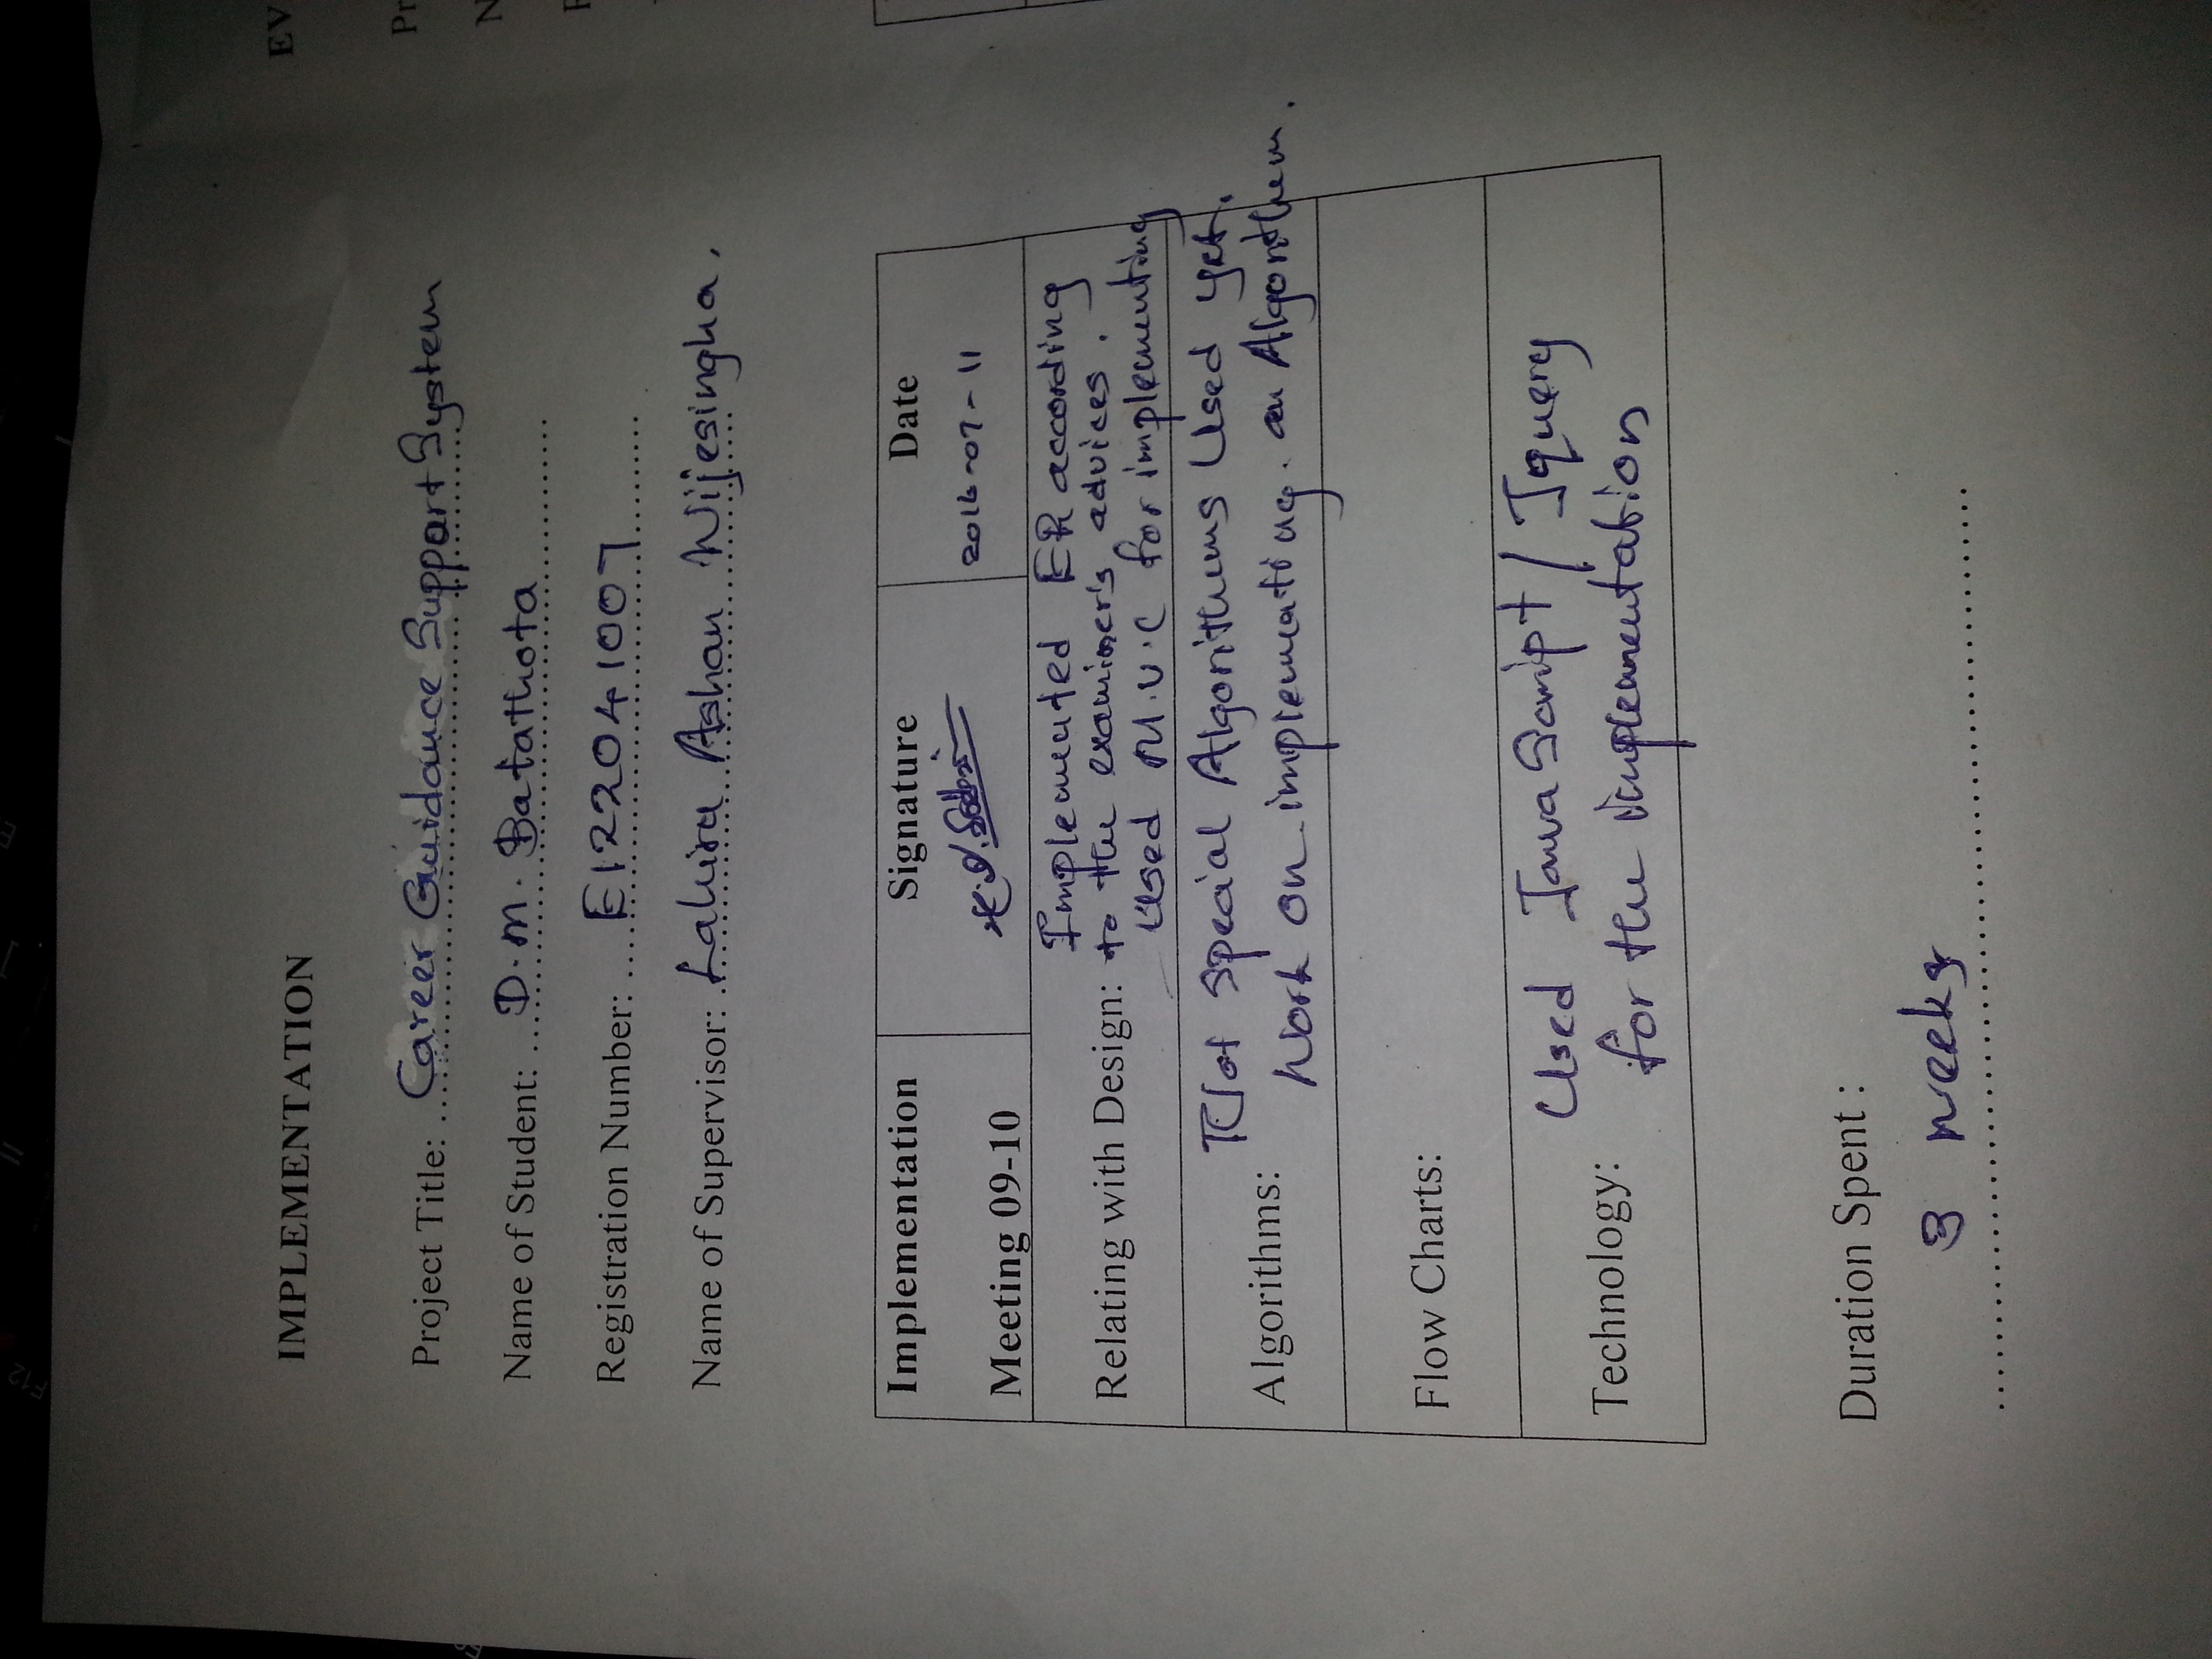 IMPLEMENTATION
Project Title: Career Guidance Support System
Name of Student: D.M. Batathota
Registration Number: E122041007
Name of Supervisor: Lahiru Ashan Wijesingha.
Implementation Signature Date
Meeting 09-10 2016-07-11
Implemented ER according
Relating with Design: to the examiner's advices.
Used M.V.C for implementing
Not special Algorithms Used yet.
Algorithms: Work on implementing. an Algorithem.
Flow Charts:
Used JavaScript / Jquery
Technology: for the implementation
Duration Spent :
3 weeks
EV
Pr
N